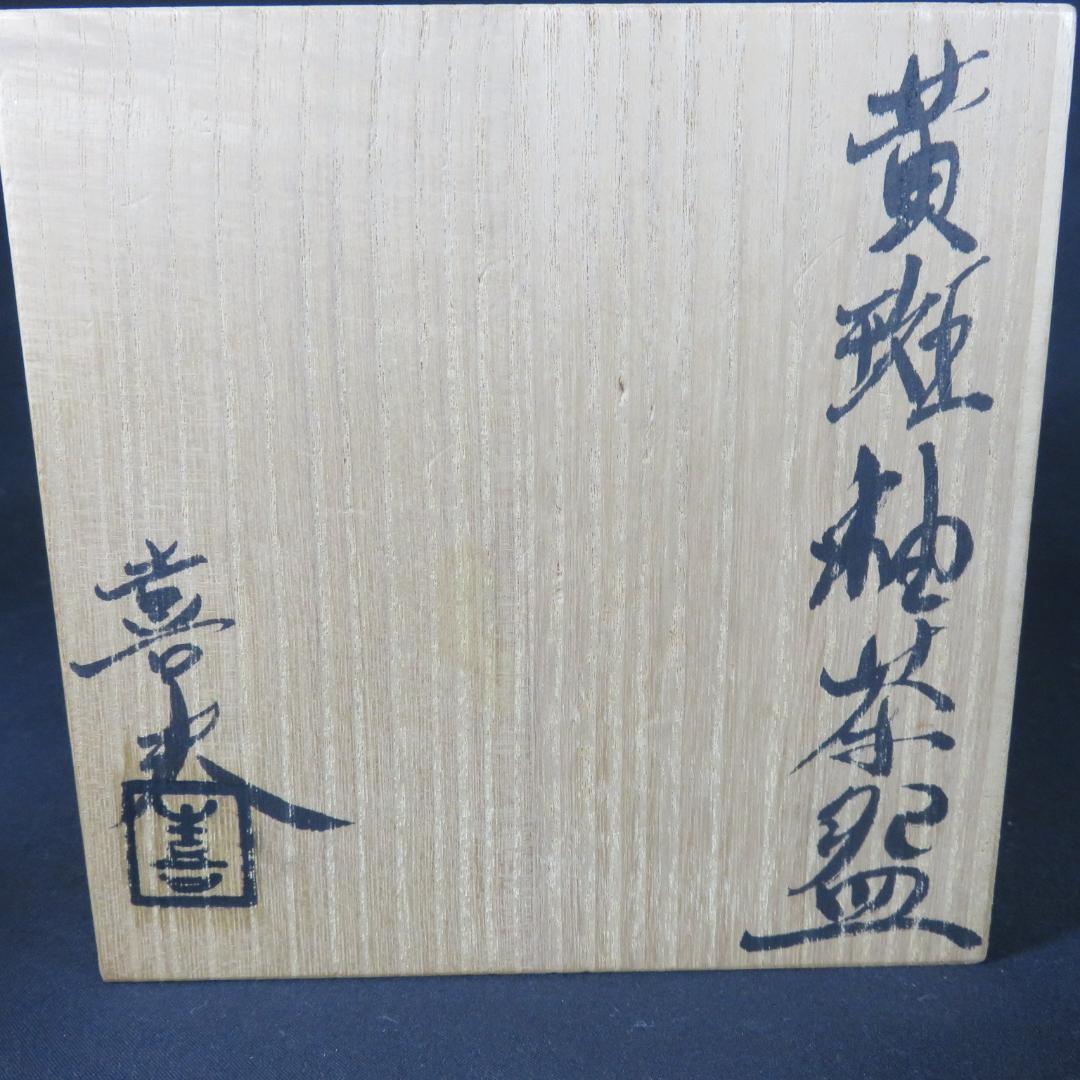 黄斑釉茶盌
喜
喜